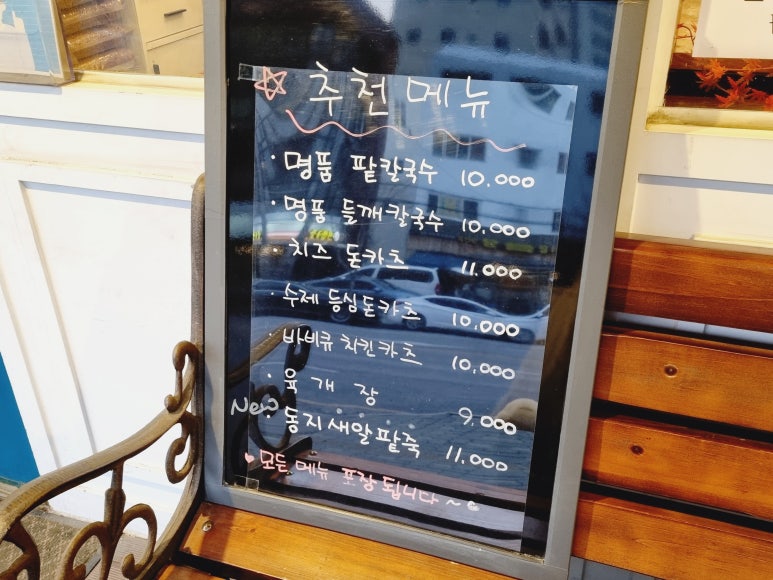 추천메뉴
· 명품 팥칼국수 10.000
· 명품 들깨칼국수 10.000
치즈 돈카츠 11.000
· 수제 등심돈카츠 10.000
· 바비큐 치킨카츠 10.000
· 육개장 9.000
New · 동지새알팥죽 11.000
♥ 모든 메뉴 포장 됩니다~